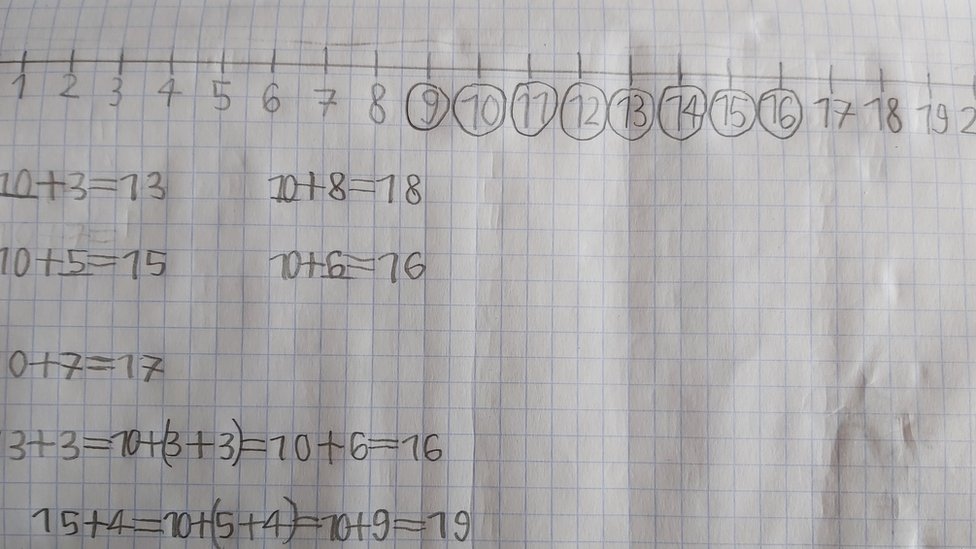 1 2 3 4 5 6 7 8 9 10 11 12 13 14 15 16 17 18 19 2
10+3=13 10+8=18
10+5=15 10+6=16
0+7=17
3+3=10+(3+3)=10+6=16
15+4=10+(5+4)=10+9=19